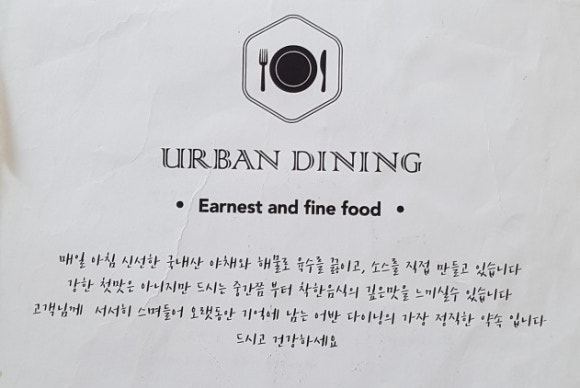 URBAN DINING
• Earnest and fine food •
매일 아침 신선한 국내산 야채와 해물로 육수를 끓이고, 소스를 직접 만들고 있습니다
강한 첫맛은 아니지만 드시는 중간쯤 부터 착한음식의 깊은맛을 느끼실수 있습니다
고객님께 서서히 스며들어 오랫동안 기억에 남는 어반 다이닝의 가장 정직한 약속 입니다
드시고 건강하세요